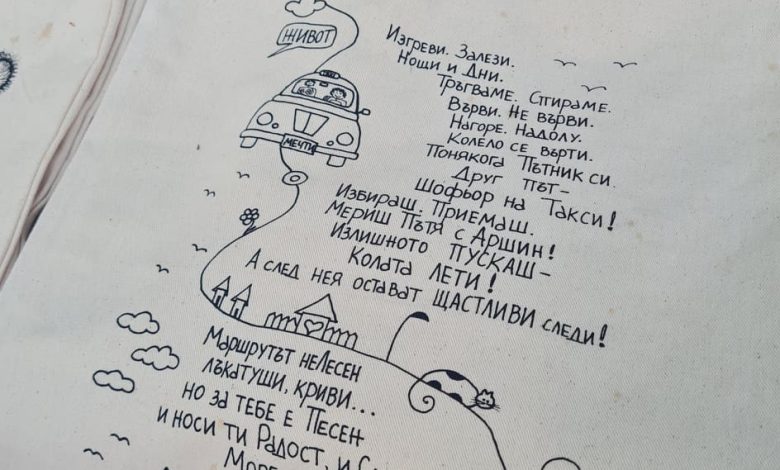 Живот
Изгреви. Залези.
Нощи и Дни.
Тръгваме. Спираме.
Върви. Не върви.
Нагоре. Надолу.
Колело се върти.
Понякога Пътник си.
Друг път –
Шофьор на Такси!
Мечти
Избираш. Приемаш.
Мериш Пътя с Аршин!
Излишното ПУСКАШ –
Колата ЛЕТИ!
А след нея остават ЩАСТЛИВИ следи!
Маршрутът неЛесен
лъкатуши, криви...
но за тебе е Песен
и носи ти Радост, и